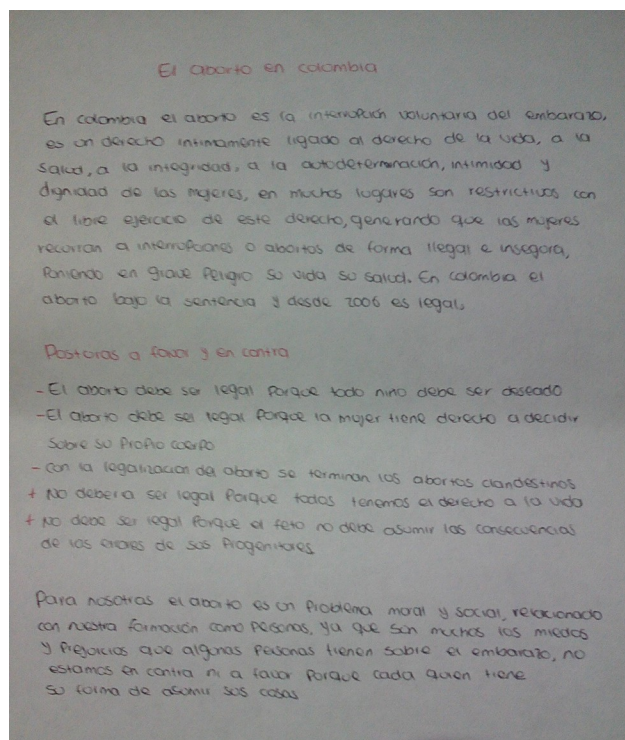 El aborto en colombia
En colombia el aborto es la interrupción voluntaria del embarazo,
es un derecho intimamente ligado al derecho de la vida, a la
salud, a la integridad, a la autodeterminación, intimidad y
dignidad de las mujeres, en muchos lugares son restrictivos con
el libre ejercicio de este derecho, generando que las mujeres
recurran a interrupciones o abortos de forma ilegal e insegora,
Poniendo en grave Peligro su vida su salud. En colombia el
aborto bajo la sentencia y desde 2006 es legal.
Postoras a favor y en contra
- El aborto debe ser legal Porque todo nino debe ser deseado
- El aborto debe ser legal Porque la mujer tiene derecho a decidir
sobre su Propio cuerpo
- con la legalizacion del aborto se terminan los abortos clandestinos
+ No deberia ser legal Porque todos tenemos el derecho a la vida
+ No debe ser legal Porque el feto no debe asumir las consecuencias
de los errores de sus Progenitores
Para nosotras el aborto es un Problema moral y social, relacionado
con nuestra formación como Personas, ya que son muchos los miedos
y Prejuicios que algunas Personas tienen sobre el embarazo, no
estamos en contra ni a favor Porque cada quien tiene
su forma de asumir sus cosas